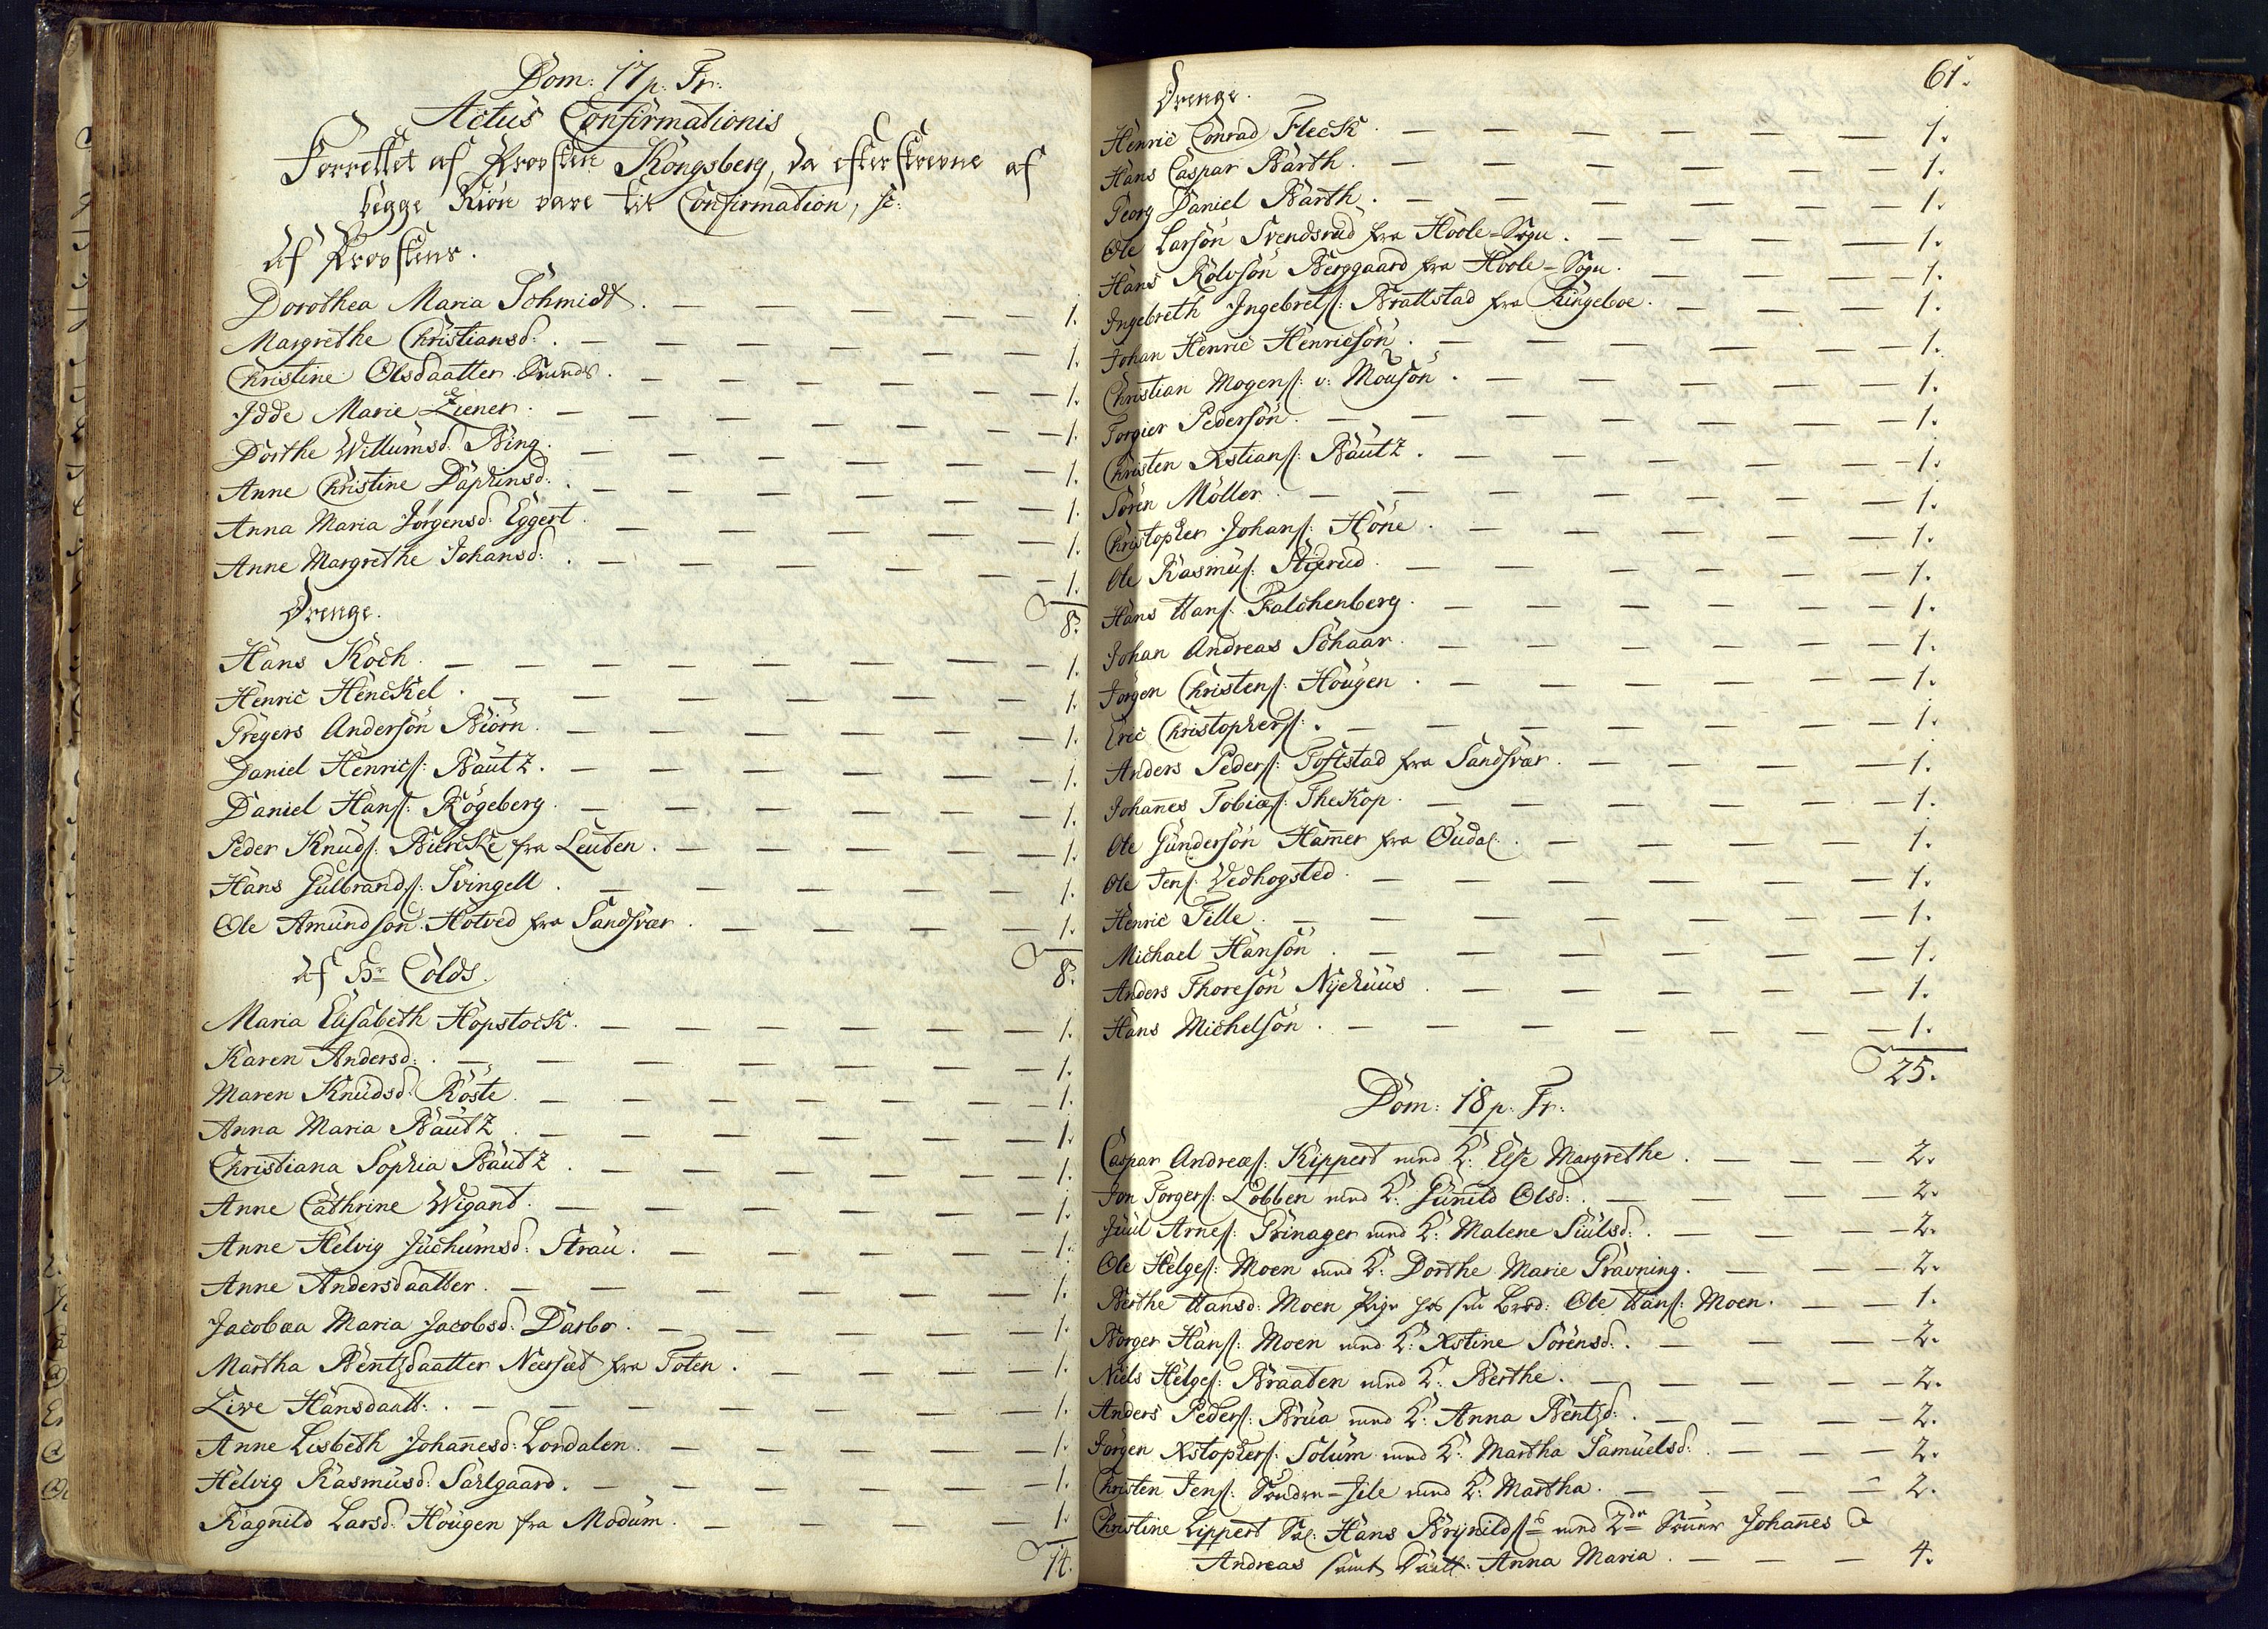 Dom: 17 p. Tr:
Actus Confirmationis
Forrettet af Provsten Kongsberg, da efterskrevne af
begge Kiön vare til Confirmation, sc:
af Provstens.
Dorothea Maria Schmidt. 1.
Margrethe Christiansd: 1.
Christine Olsdaatter 1.
Idde Marie Ziener. 1.
Dorthe Willumsd: Bing. 1.
Anne Christine Daphinsd: 1.
Anna Maria Jörgensd: Eggert. 1.
Anne Margrethe Johansd: 1.
8.
Drenge.
Hans Koch. 1.
Henric Henckel. 1.
Gregers Andersön Biörn. 1.
Daniel Henrics: Bautz. 1.
Daniel Hans: Kögeberg. 1.
Peder Knuds: Bircke fra Leuten. 1.
Hans Gulbrands: Svingell. 1.
Ole Amundsön Hotved fra Sandsvær. 1.
8.
af Hr Colds.
Maria Elisabeth Hopstock. 1.
Karen Andersd: 1.
Maren Knudsd: Röste. 1.
Anna Maria Bautz. 1.
Christiana Sophia Bautz. 1.
Anne Cathrine Wigant. 1.
Anne Helvig Juchumsd: Strau. 1.
Anne Andersdaatter. 1.
Jacobæa Maria Jacobsd: Darbo. 1.
Martha Bentzdaatter Neersæt fra Toten. 1.
Live Hansdaatt: 1.
Anne Lisbeth Johannesd: Lordalen. 1.
Helvig Rasmusd: Sarlgaard. 1.
Ragnild Larsd: Hougen fra Modum. 1.
14.
61.
Drenge.
Henric Conrad Fleck. 1.
Hans Caspar Barth. 1.
Georg Daniel Barth. 1.
Ole Larsön Svendsrud fra Hoole-Sogn. 1.
Hans Rolvsön Berggaard fra Hoole-Sogn. 1.
Ingebreth Ingebrets: Brattstad fra Ringeboe. 1.
Johan Henric Henricsön. 1.
Christian Mogens: v: Mousön. 1.
Torgier Pedersön. 1.
Christen Xstians: Bautz. 1.
Sören Möller. 1.
Christopher Johans: Höne. 1.
Ole Rasmus: Stigerud. 1.
Hans Hans: Falchenberg. 1.
Johan Andreas Schaar. 1.
Jörgen Christens: Hougen. 1.
Eric Christophers: 1.
Anders Peders: Toftstad fra Sandsvær. 1.
Johannes Tobias: Thekop. 1.
Ole Gundersön Hammer fra Oudal. 1.
Ole Jens: Vedhogsted. 1.
Henric Tille. 1.
Michael Hansön. 1.
Anders Thoresön Nyehuus. 1.
Hans Michelsön. 1.
25.
Dom: 18 p. Tr:
Caspar Andreas: Kippert med K: Else Margrethe. 2.
Jon Torgers: Lobben med K: Gunild Olsd: 2.
Juul Arnes: Grinager med K: Malene Siulsd: 2.
Ole Helges: Moen med K: Dorthe Marie Gravning. 2.
Berthe Hansd: Moen Pige hos sin Brod: Ole Hans: Moen. 1.
Borger Hans: Moen med K: Xstine Sörensd: 2.
Niels Helges: Braaten med K: Berthe. 2.
Anders Peders: Brua med K: Anna Bentzd: 2.
Jörgen Xstophers: Solum med K: Martha Samuelsd: 2.
Christen Jens: Söndre-Jile med K: Martha. 2.
Christine Lippert Sal: Hans Brynilds: med 2de Sönner Johannes &
Andreas samt Daatt: Anna Maria. 4.